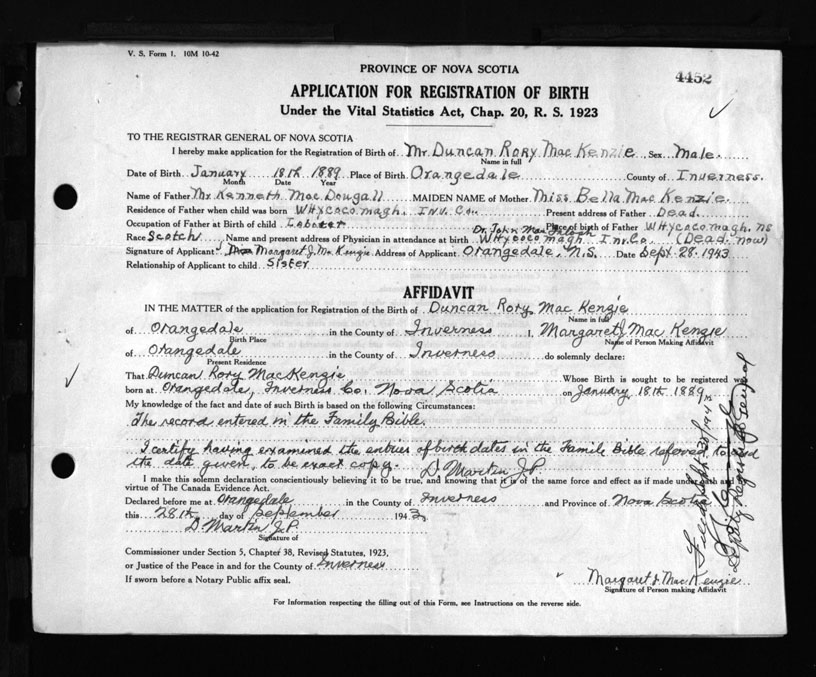 V. S. Form 1. 10M 10-42
PROVINCE OF NOVA SCOTIA
4452
APPLICATION FOR REGISTRATION OF BIRTH
Under the Vital Statistics Act, Chap. 20, R. S. 1923
TO THE REGISTRAR GENERAL OF NOVA SCOTIA
I hereby make application for the Registration of Birth of Mr Duncan Rory Mac Kenzie Sex Male.
Name in full
Date of Birth January 18th 1889 Place of Birth Orangedale County of Inverness.
Month Date Year
Name of Father Mr Kenneth Mac Dougall MAIDEN NAME of Mother Miss Bella Mac Kenzie.
Residence of Father when child was born Whycocomagh. Inv. Co. Present address of Father Dead.
Occupation of Father at Birth of child Laborer Place of birth of Father Whycocomagh. NS
Dr. John Mac Intosh
Race Scotch Name and present address of Physician in attendance at birth Whycocomagh Inv. Co. (Dead. now)
Signature of Applicant Margaret J. Mc Kenzie Address of Applicant Orangedale, N.S. Date Sept. 28. 1943
Relationship of Applicant to child Sister
AFFIDAVIT
IN THE MATTER of the application for Registration of the Birth of Duncan Rory Mac Kenzie
Name in full
of Orangedale in the County of Inverness I, Margaret J. Mac Kenzie
Birth Place Name of Person Making Affidavit
of Orangedale in the County of Inverness do solemnly declare:
Present Residence
That Duncan Rory MacKenzie Whose Birth is sought to be registered was
born at Orangedale, Inverness Co. Nova Scotia on January 18th 1889
My knowledge of the fact and date of such Birth is based on the following Circumstances:
The record entered in the Family Bible.
I certify having examined the entries of birth dates in the Family Bible referred to and
the date given, to be exact copy. D. Martin J.P.
I make this solemn declaration conscientiously believing it to be true, and knowing that it is of the same force and effect as if made under oath and
virtue of The Canada Evidence Act.
Declared before me at Orangedale in the County of Inverness and Province of Nova Scotia
this 28th day of September 1943
D. Martin J.P.
Signature of
Commissioner under Section 5, Chapter 38, Revised Statutes, 1923,
or Justice of the Peace in and for the County of Inverness
If sworn before a Notary Public affix seal.
Margaret J. Mac Kenzie
Signature of Person making Affidavit
For Information respecting the filling out of this Form, see Instructions on the reverse side.
Deputy Registrar General